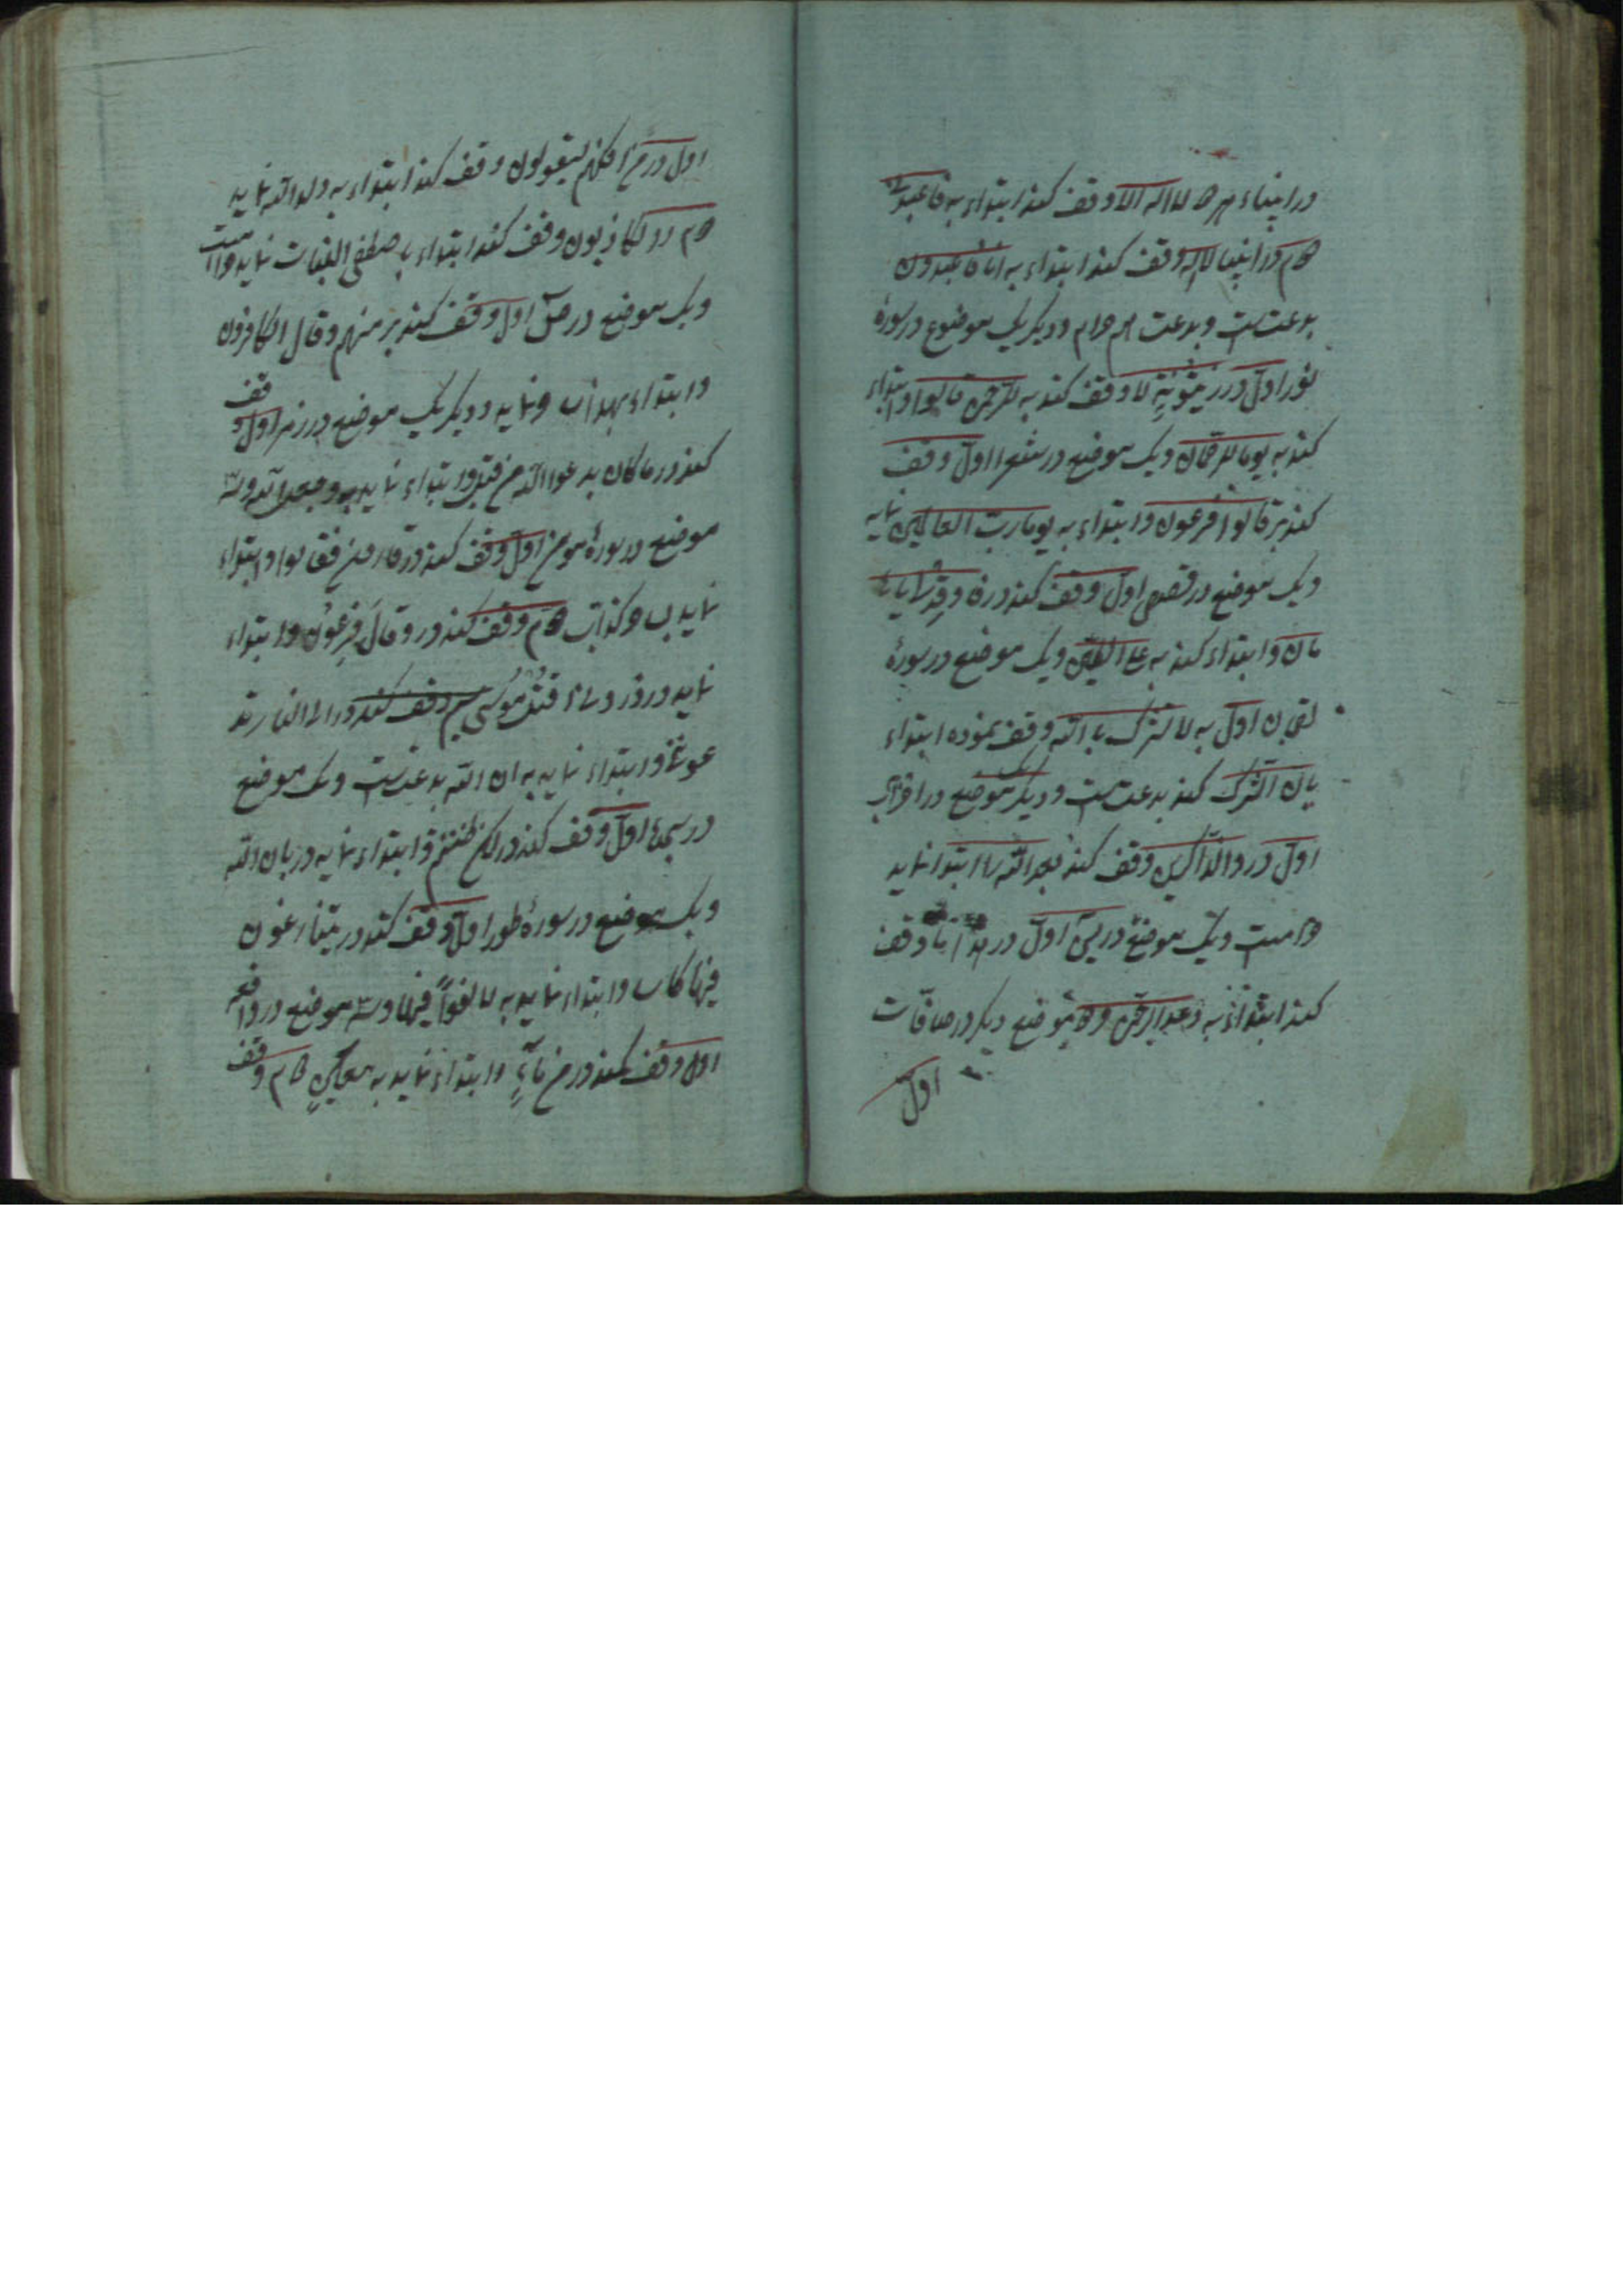 در انبیاء لا اله الا وقف کند ابتداء به فاعبدون
دوم در انبیا لا اله وقف کند ابتداء به انا فاعبدون
بدعت ست و بدعت هم حرام و دیگر یک موضوع در سورهٔ
نور اول در زیتونة لا وقف کند به للرحمن قالوا و ابتداء
کند به یک موضع در شعرا اول وقف
کند بر قال فرعون و ابتداء به وما رب العالمین نماید
و یک موضع در قصص اول وقف کند در فاوقد لی یا
مان و ابتداء کند به علی الطین و یک موضع در سورهٔ
لقمان اول به لا تشرک بالله وقف نموده ابتداء
بان الشرک کند بدعت ست و دیگر یک موضع در احزاب
اول در والذاکرین وقف کند بعد الله را ابتدا نماید
حرامست و یک موضع در یس اول در هذا ما وقف
کند ابتداء به وعد الرحمن و دو موضع دیگر در صافات
اول
اول در من افکهم لیقولون وقف کند ابتداء به ولد الله نماید
دوم در لکاذبون وقف کند ابتداء باصطفی البنات نماید حرامست
و یک موضع در ص اول وقف کند بر منهم وقال الکافرون
و ابتداء بهذا نماید و دیگر یک موضع در زمر اول وقف
کند در ما کان یدعوا الیه من قبل و ابتداء نماید به وجعل لله و سه
موضع در سورهٔ مؤمن اول وقف کند در قارون فقالوا و ابتداء
نماید ب کذاب دوم وقف کند در وقال فرعون و ابتداء
نماید در ذرونی اقتل موسی سیم وقف کند در الی النار تد
عوننی و ابتداء نماید به ان الله بدعت ست و یک موضع
در سجده اول وقف کند در لکن ظننتم و ابتداء نماید در بان الله
و یک موضع در سورهٔ طور اول وقف کند در یتنازعون
فیها کاسا و ابتداء نماید به لا لغوا فیها و سه موضع در واقعه
اول وقف کند در من ماء و ابتداء نماید به معین دوم وقف